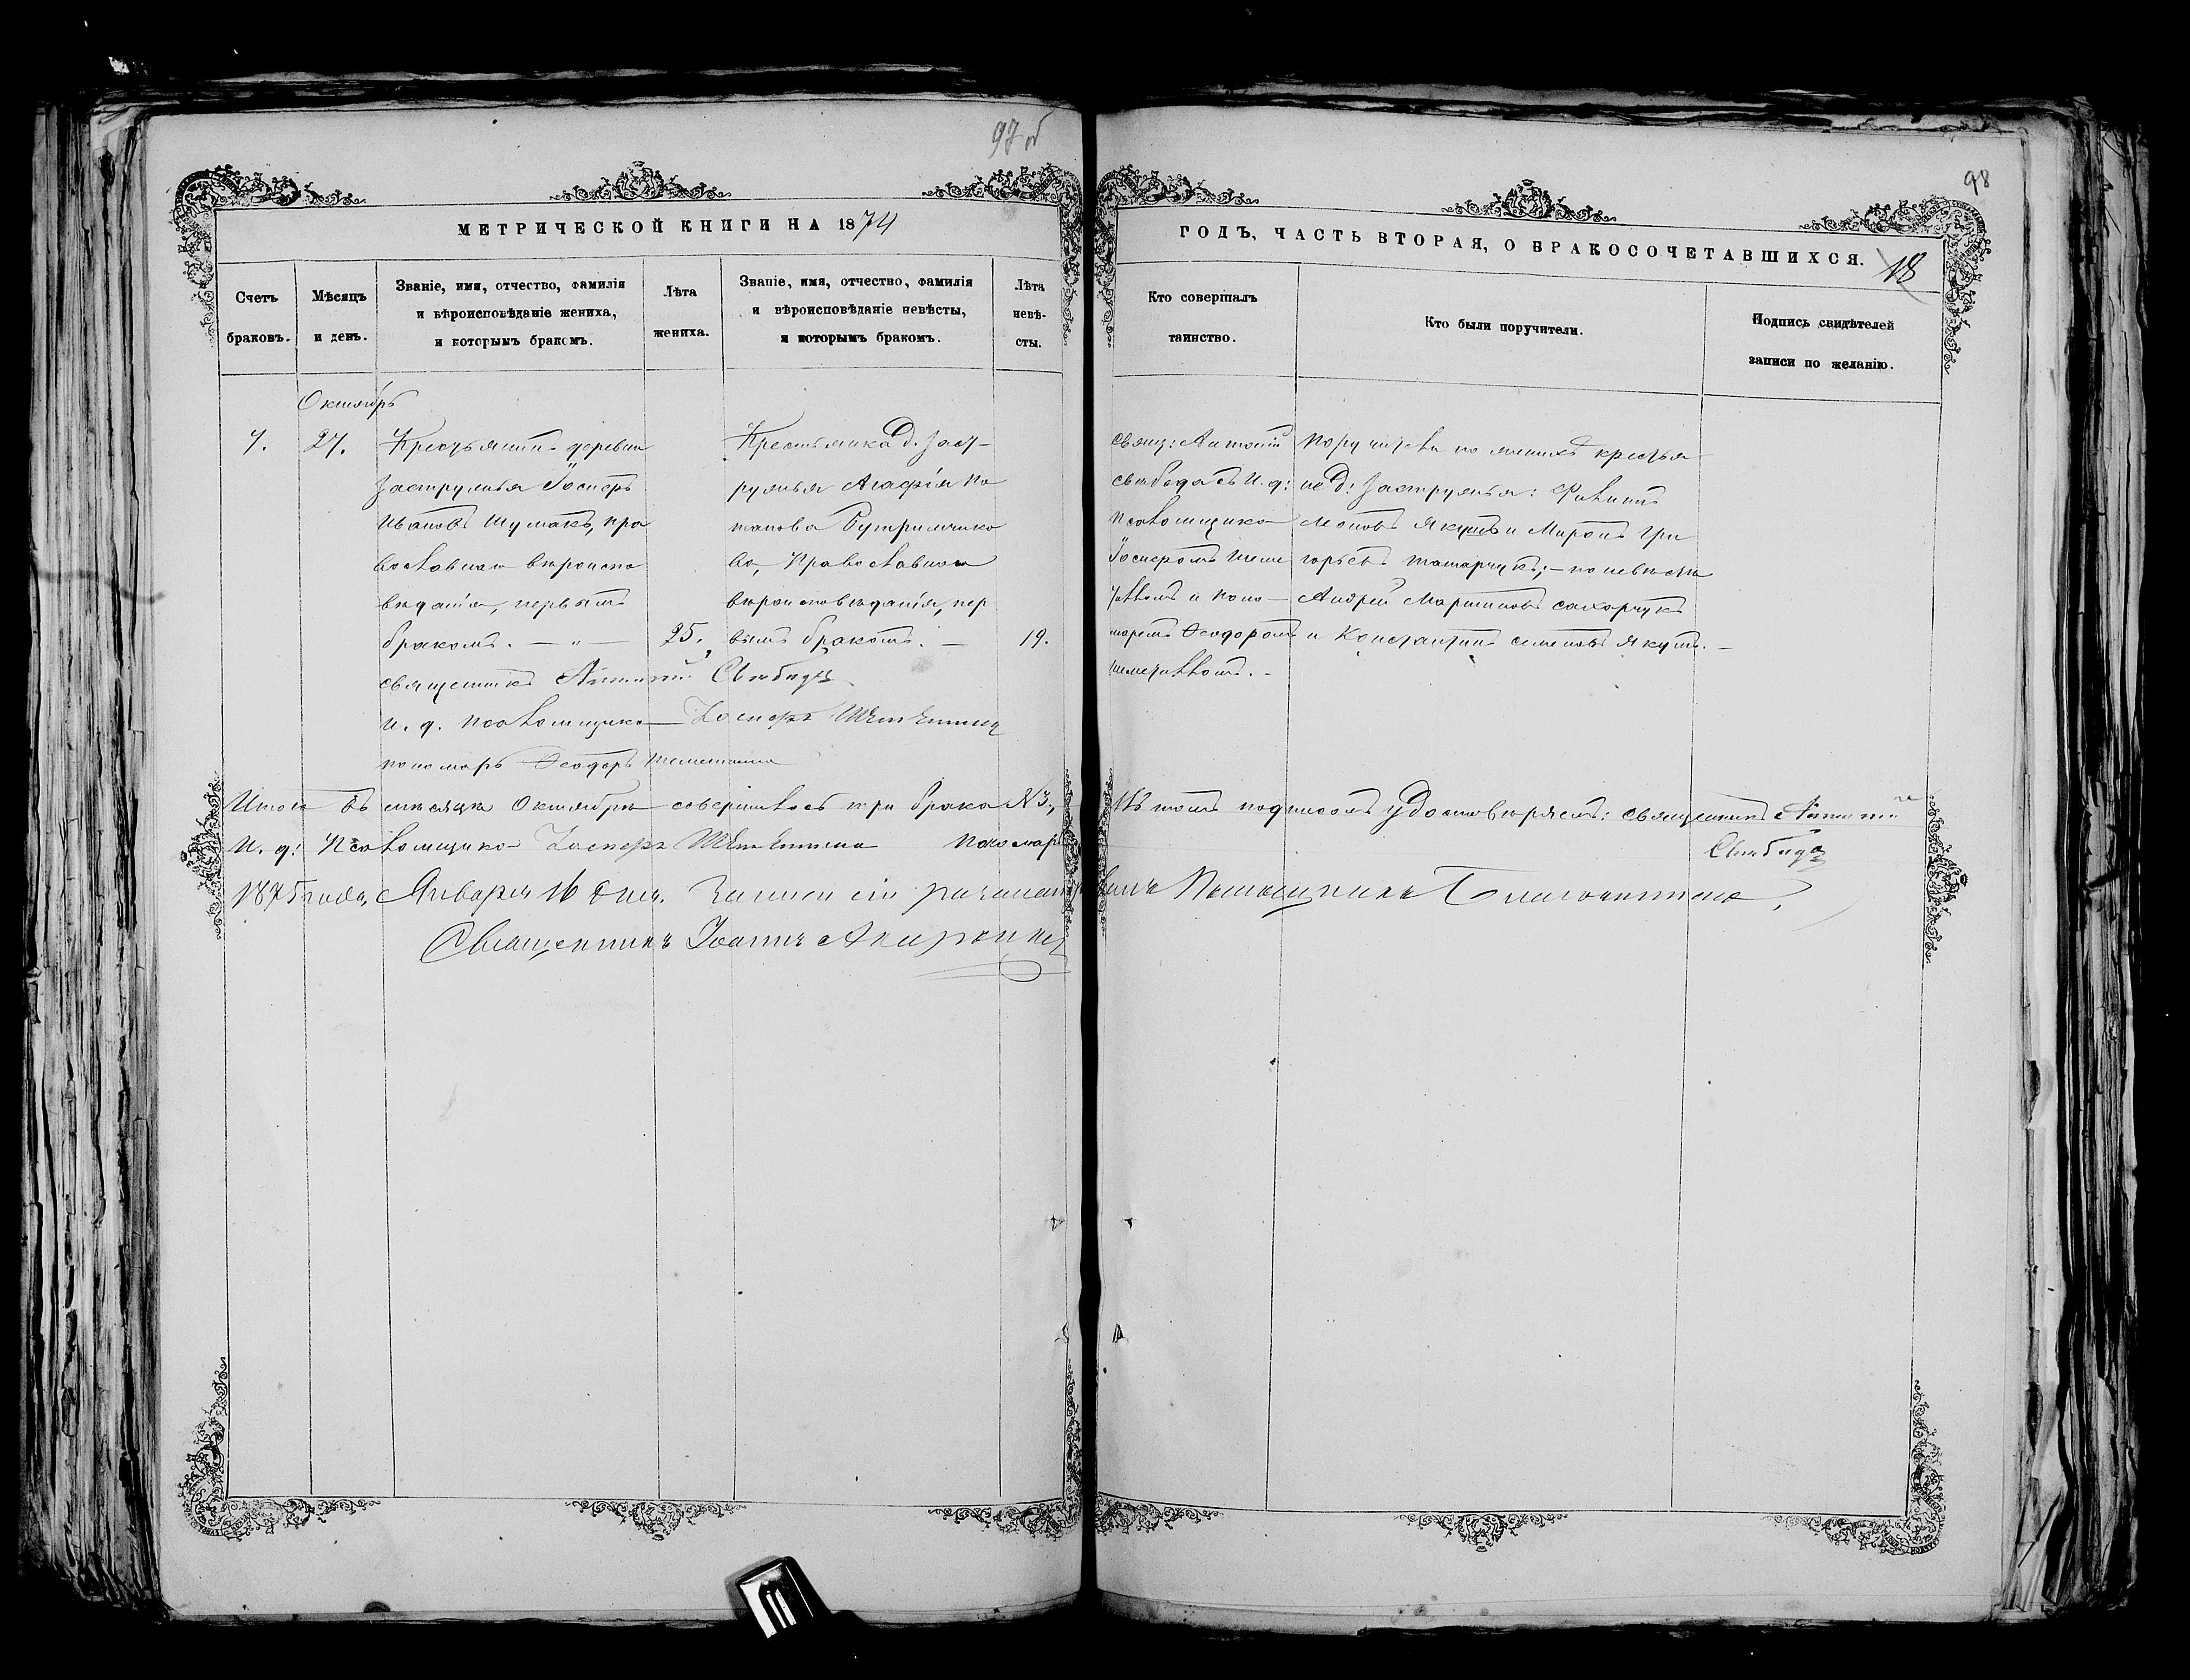 97 об
98
МЕТРИЧЕСКОЙ КНИГИ НА 1874
ГОДЪ, ЧАСТЬ ВТОРАЯ, О БРАКОСОЧЕТАВШИХСЯ.
18
Счетъ
браковъ.
Мѣсяцъ
и день.
Званіе, имя, отчество, фамилія
и вѣроисповѣданіе жениха,
и которымъ бракомъ.
Лѣта
жениха.
Званіе, имя, отчество, фамилія
и вѣроисповѣданіе невѣсты,
и которымъ бракомъ.
Лѣта
невѣ-
сты.
Кто совершалъ
таинство.
Кто были поручители.
Подпись свидѣтелей
записи по желанію.
Октябрь
7.
27.
Крестьянинъ деревни
Заструмья Іосифъ
Ивановъ Шумакъ, пра
вославнаго вѣроиспо
вѣданія, первымъ
бракомъ. — „ —
25.
Крестьянка д. Заст-
румья Агафія По
тапова
ва, Православнаго
вѣроисповѣданія, пер
вымъ бракомъ. —
19.
свящ: Антоній
съ И. д:
Псаломщика
Іосифомъ Теме
и поно-
маремъ Ѳеодоромъ
Поручители по женихѣ крестья
не д: Заструмья:
Якушъ и Миронъ Гри
горьевъ Татарчукъ; — по невѣстѣ
Андрей Мартиновъ Сахарчукъ
и Константинъ Семеновъ Якушъ. —
священникъ Антоній
И. д. Псаломщика Іосифъ
пономарь Ѳеодоръ
Итого въ мѣсяцѣ Октябрѣ совершилось три брака №3.,
Въ томъ подписомъ удостовѣряемъ: священникъ Антоній
И. д: Псаломщика Іосифъ Пономарь
1875 года, Января 16 дня. Записи сіи разсматривалъ Помощникъ Благочиннаго,
Священникъ Іоаннъ